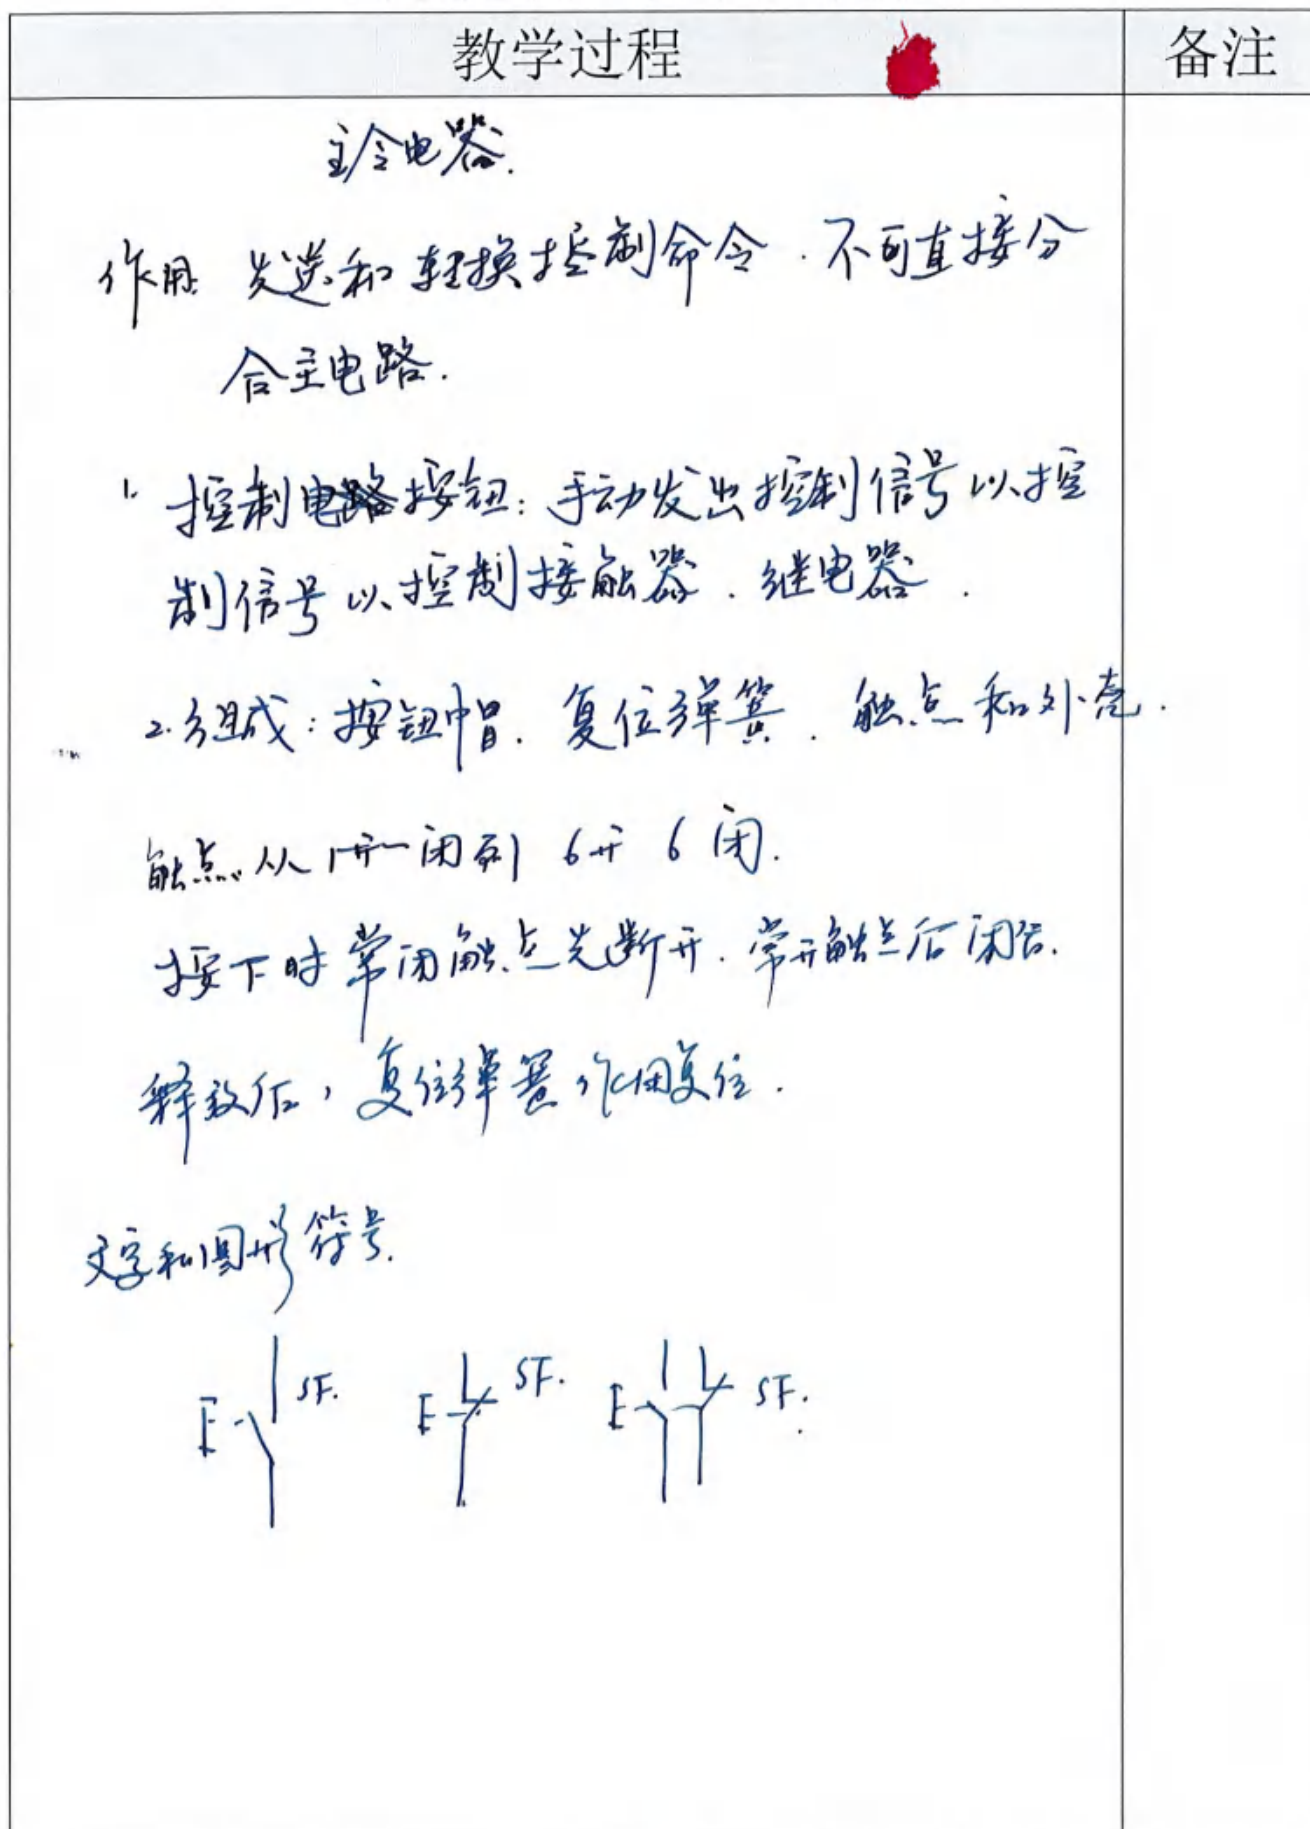 教学过程
备注
主令电器.
作用: 发送和转换控制命令. 不可直接分
合主电路.
1. 控制电路按钮: 手动发出控制信号以控
制信号以控制接触器. 继电器.
2. 组成: 按钮帽. 复位弹簧. 触点和外壳.
触点从1开一闭到 6开 6闭.
按下时常闭触点先断开. 常开触点后闭合.
释放后, 复位弹簧作用复位.
文字和图形符号.
SF. SF. SF.